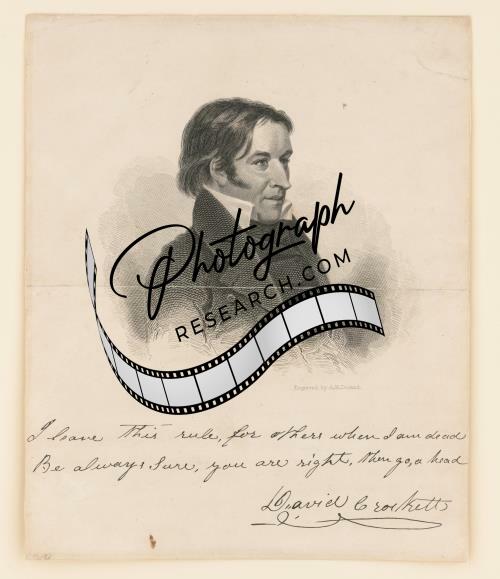 Photograph
RESEARCH.COM
Engraved by A.B.Durand.
I leave this rule, for others when I am dead
Be always sure, you are right, then go, a head
David Crockett